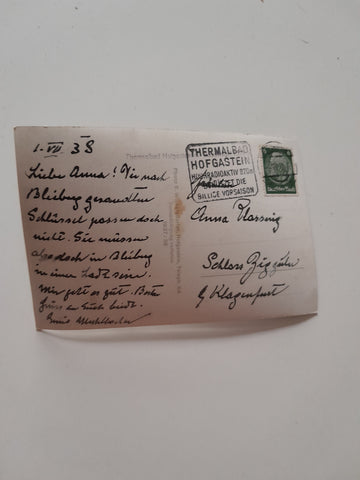 1. VII 38
Liebe Anna! Die nach
Bleiburg gesandten
Schlüssel passen doch
nicht. Sie müssen
also doch in Bleiburg
in einer Lade sein.
Mir geht es gut. Beste
Grüsse an Euch beide.
Thermalbad Hofgastein
THERMALBAD
HOFGASTEIN
HOCHRADIOAKTIV 870m
BILLIGE VORSAISON
Deutsches Reich
Anna
Schloss
b/ Klagenfurt